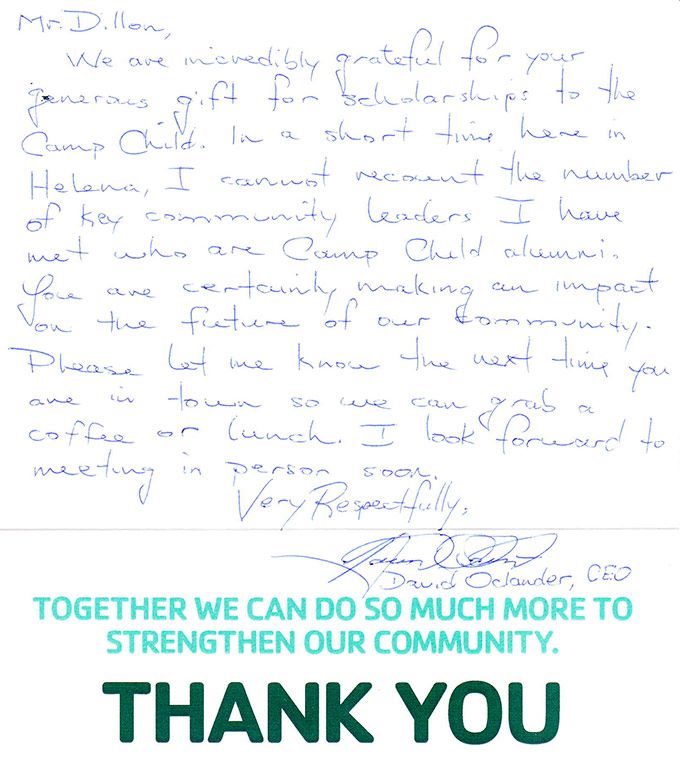 Mr. Dillon,
We are incredibly grateful for your
generous gift for scholarships to the
Camp Child. In a short time here in
Helena, I cannot recount the number
of key community leaders I have
met who are Camp Child alumni.
You are certainly making an impact
on the future of our community.
Please let me know the next time you
are in town so we can grab a
coffee or lunch. I look forward to
meeting in person soon.
Very Respectfully,
David Oclander, CEO
TOGETHER WE CAN DO SO MUCH MORE TO
STRENGTHEN OUR COMMUNITY.
THANK YOU